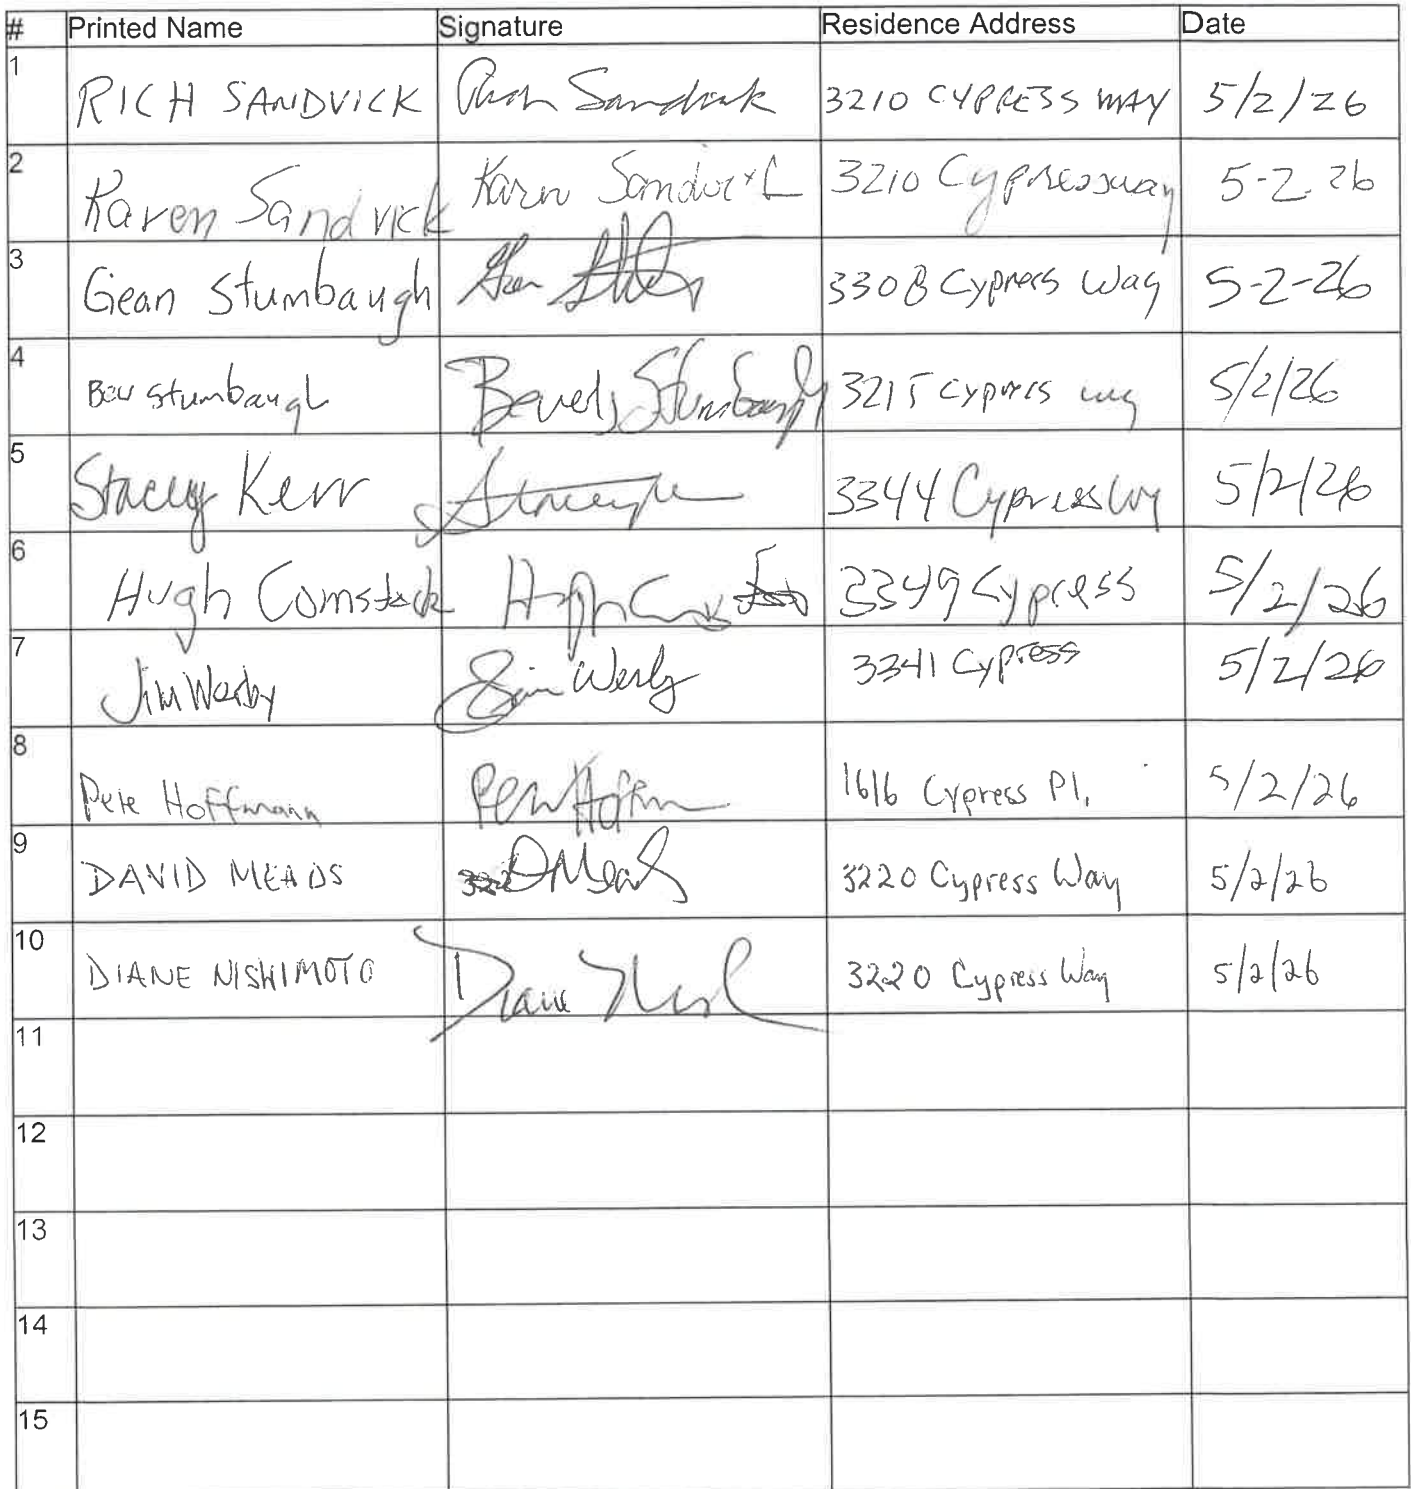 # Printed Name Signature Residence Address Date
1 RICH SANDVICK Rich Sandvick 3210 CYPRESS WAY 5/2/26
2 Karen Sandvick Karen Sandvick 3210 Cypressway 5-2 26
3 Gean Stumbaugh 3308 Cypress Way 5-2-26
4 Bev Stumbaugh Beverly Stumbaugh 3215 Cypress way 5/2/26
5 Stacey Kerr 3344 Cypress Wy 5/2/26
6 Hugh Comstock 3349 Cypress 5/2/26
7 Jim Werby Jim Werby 3341 Cypress 5/2/26
8 Pete Hoffmann 1616 Cypress Pl. 5/2/26
9 DAVID MEADS DMeads 3220 Cypress Way 5/2/26
10 DIANE NISHIMOTO Diane 3220 Cypress Way 5/2/26
11
12
13
14
15